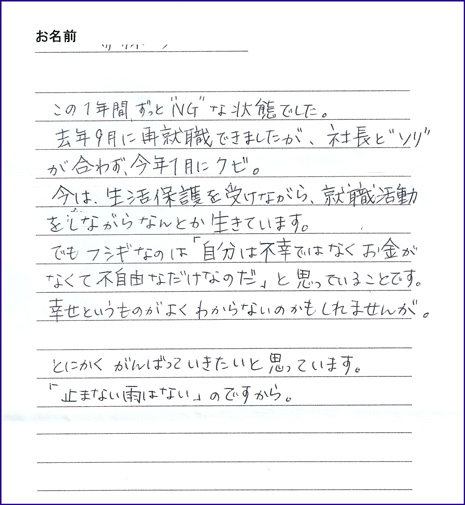 お名前
この1年間、ずっと"NG"な状態でした。
去年9月に再就職できましたが、社長と"ソリ"
が合わず、今年1月にクビ。
今は、生活保護を受けながら、就職活動
をしながらなんとか生きています。
でもフシギなのは「自分は不幸ではなくお金が
なくて不自由なだけなのだ」と思っていることです。
幸せというものがよくわからないのかもしれませんが。
とにかくがんばっていきたいと思っています。
「止まない雨はない」のですから。